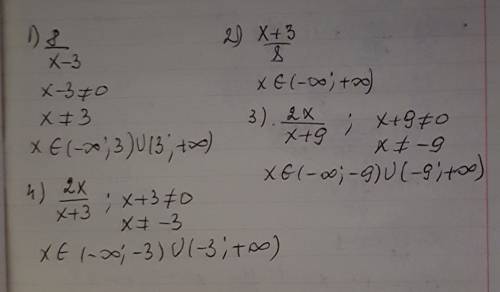 1) 8/(x-3)
x-3≠0
x≠3
x∈(-∞;3)∪(3;+∞)
2) (x+3)/8
x∈(-∞;+∞)
3). 2x/(x+9) ; x+9≠0
x≠-9
x∈(-∞;-9)∪(-9;+∞)
4) 2x/(x+3) ; x+3≠0
x≠-3
x∈(-∞;-3)∪(-3;+∞)